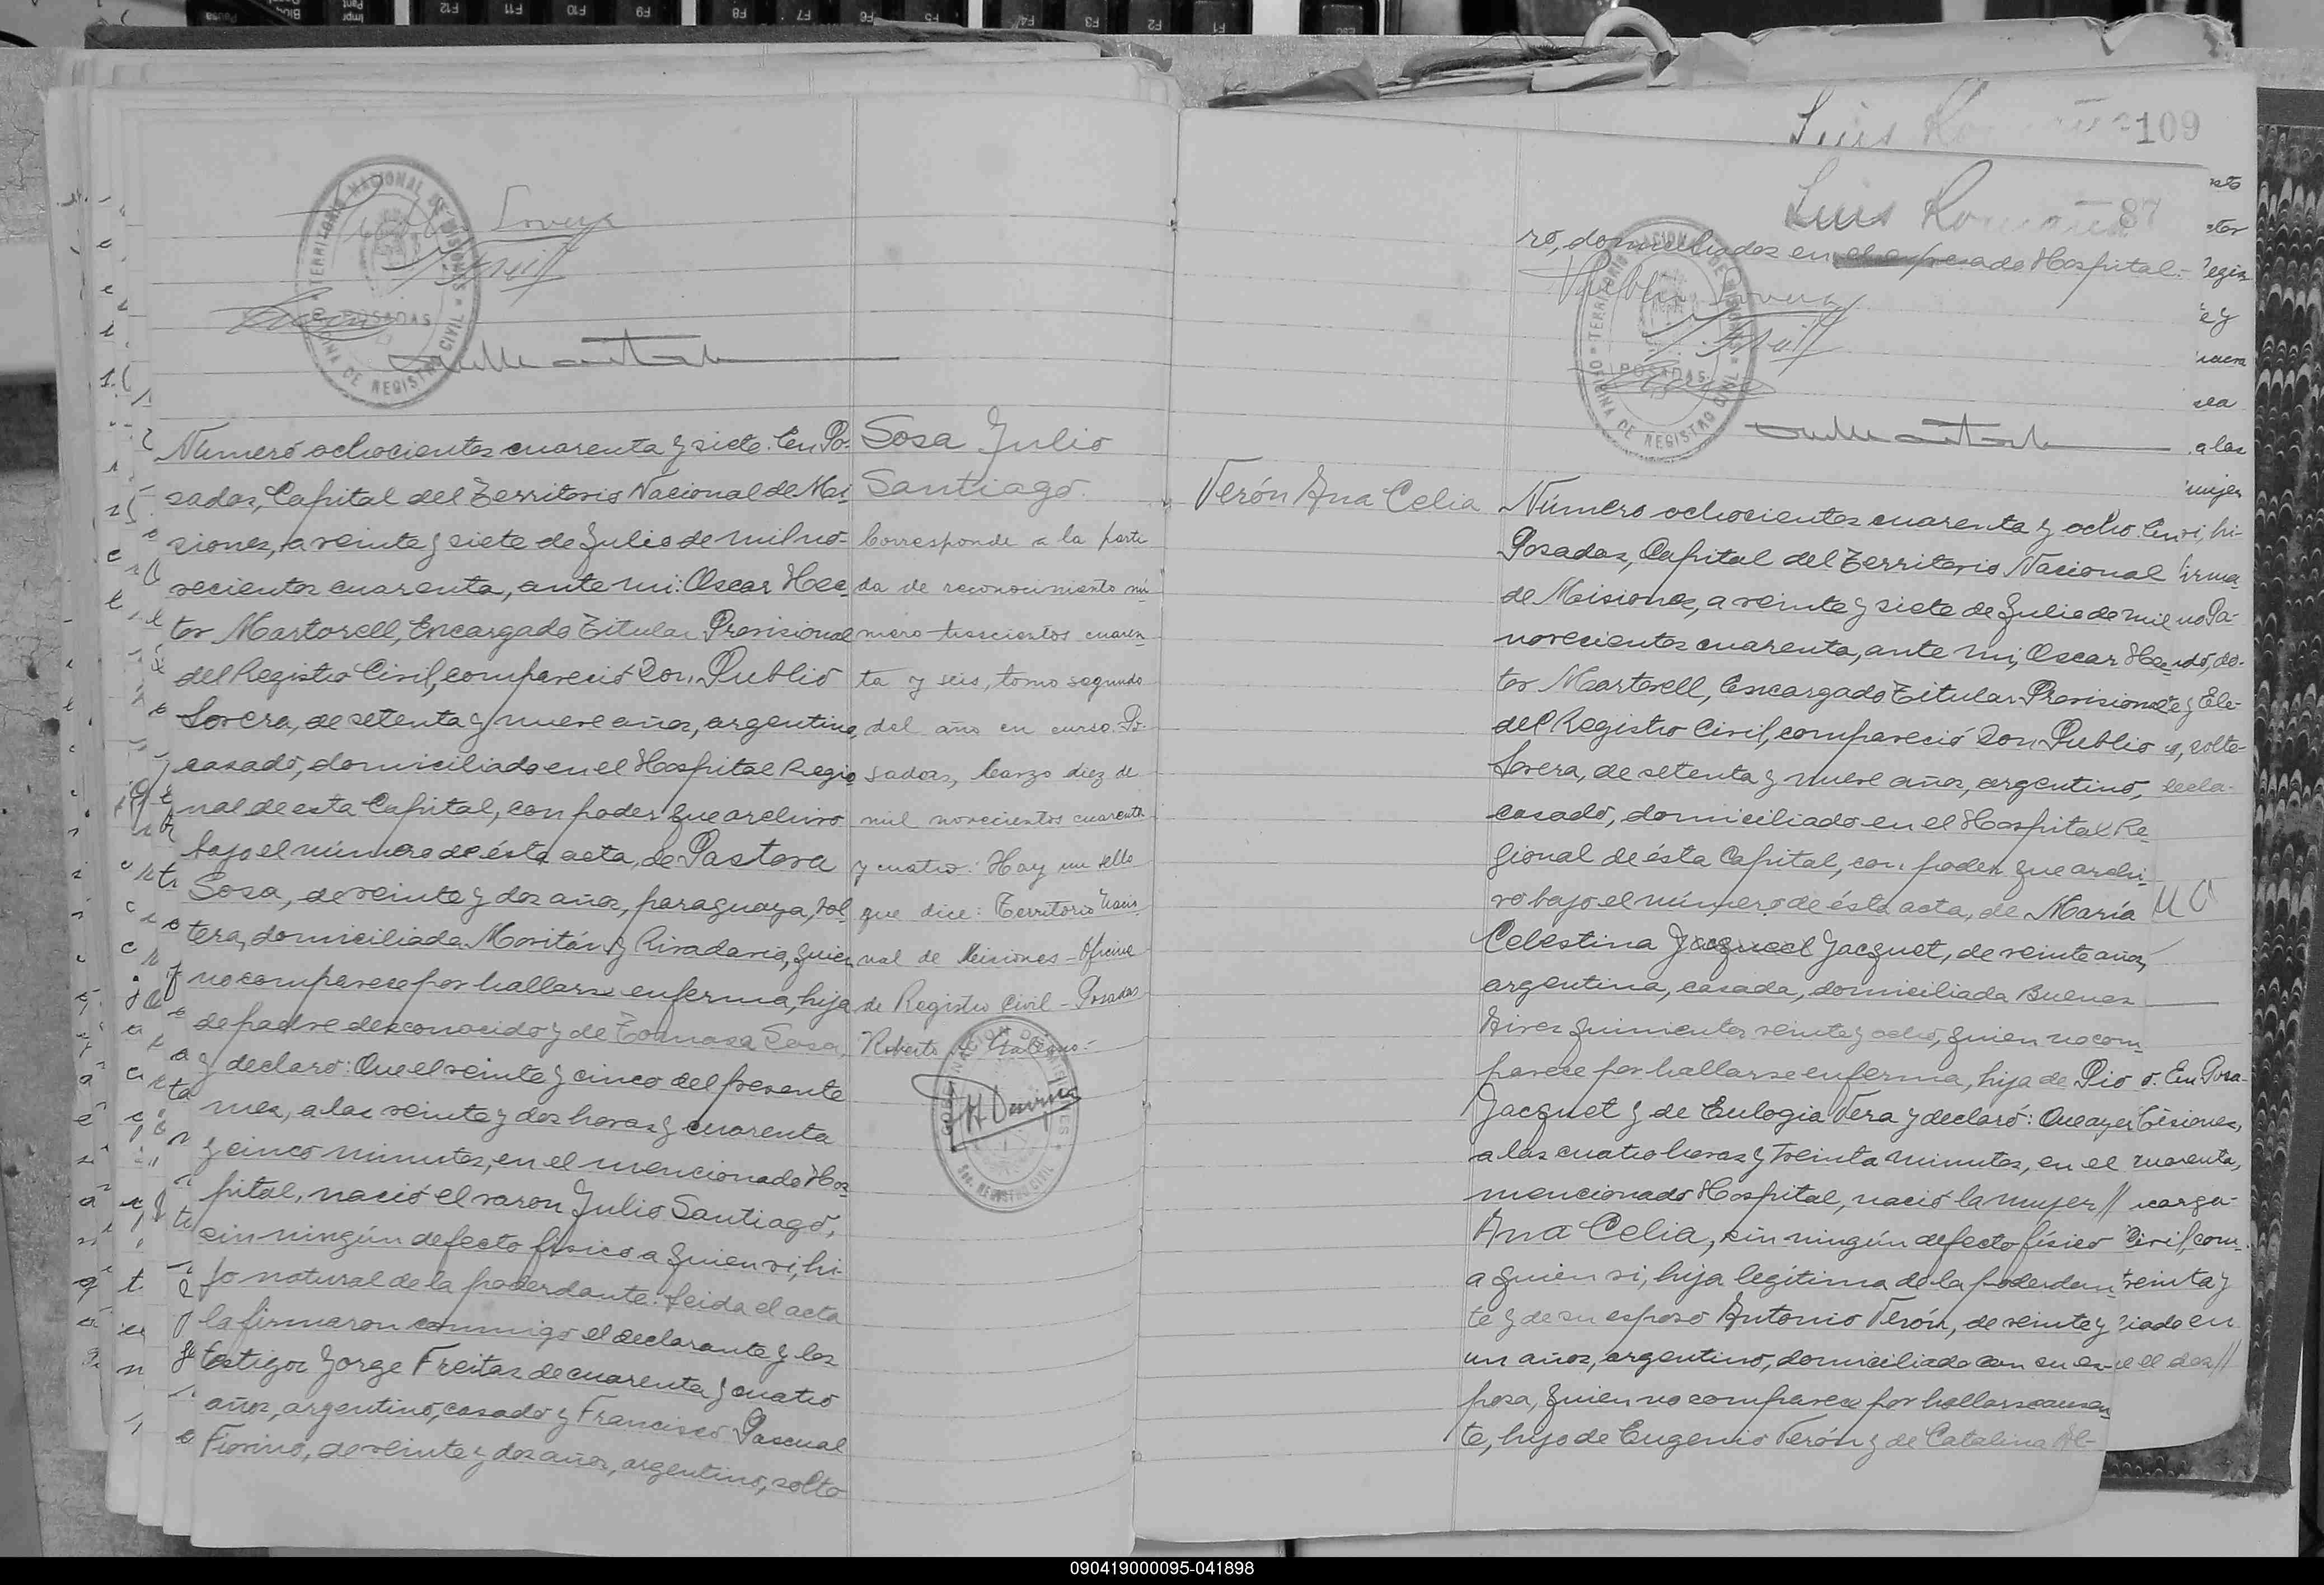 Impr
Pant
F12
F11
F10
F9
F8
F7
F6
F5
F4
F3
F2
F1
Esc
TERRITORIO NACIONAL DE MISIONES
OFICINA DE REGISTRO CIVIL
POSADAS
Lovera
Número ochocientos cuarenta y siete. En Po-
sadas, Capital del Territorio Nacional de Mi-
siones, a veinte y siete de Julio de mil no-
vecientos cuarenta, ante mi: Oscar Hec-
tor Martorell, Encargado Titular Provisional
del Registro Civil, compareció Don Publio
Lovera, de setenta y nueve años, argentino,
casado, domiciliado en el Hospital Regio
nal de esta Capital, con poder que archivo
bajo el número de ésta acta, de Pastora
Sosa, de veinte y dos años, paraguaya, sol-
tera, domiciliada Moritán y Rivadavia, quien
no comparece por hallarse enferma, hija
de padre desconocido y de Tomasa Sosa,
y declaró: Que el veinte y cinco del presente
mes, a las veinte y dos horas y cuarenta
y cinco minutos, en el mencionado Hos-
pital, nació el varon Julio Santiago,
sin ningún defecto físico a quien vi, hi-
jo natural de la poderdante. Leida el acta
la firmaron conmigo el declarante y los
testigos Jorge Freitas de cuarenta y cuatro
años, argentino, casado y Francisco Pascual
Fiorino, de veinte y dos años, argentino, solte
Sosa Julio
Santiago.
Corresponde a la parti
da de reconocimiento nú
mero trescientos cuaren
ta y seis, tomo segundo
del año en curso. Po-
sadas, Marzo diez de
mil novecientos cuarenta
y cuatro: Hay un sello
que dice: Territorio Nacio
nal de Misiones - Oficina
de Registro Civil - Posadas
Roberto
GOBERNACION DE MISIONES
SEC. REGISTRO CIVIL
109
Luis
Luis
87
ro, domiciliados en el expresado Hospital.-
Publio Lovera
TERRITORIO NACIONAL DE MISIONES
OFICINA DE REGISTRO CIVIL
POSADAS
Verón Ana Celia
Número ochocientos cuarenta y ocho. En
Posadas, Capital del Territorio Nacional
de Misiones, a veinte y siete de Julio de mil
novecientos cuarenta, ante mi, Oscar Hec-
tor Martorell, Encargado Titular Provisional
del Registro Civil, compareció Don Publio
Lovera, de setenta y nueve años, argentino,
casado, domiciliado en el Hospital Re-
gional de ésta Capital, con poder que archi-
vo bajo el número de ésta acta, de María
Celestina Jacquet, de veinte años,
argentina, casada, domiciliada Buenos
Aires quinientos veinte y ocho, quien no com-
parece por hallarse enferma, hija de Pio
Jacquet y de Eulogia Vera y declaró: Que ayer
a las cuatro horas y treinta minutos, en el
mencionado Hospital, nació la mujer //
Ana Celia, sin ningún defecto físico
a quien vi, hija legítima de la poderdan-
te y de su esposo Antonio Verón, de veinte y
un años, argentino, domiciliado con su es-
posa, quien no comparece por hallarse ausen-
te, hijo de Eugenio Verón y de Catalina Al-
a las
mujer
vi, hi-
firma
Pa-
y Ele-
solte-
decla-
En Posa-
Misiones,
cuarenta,
ncarga-
Civil, com-
treinta y
ciado en
el dos //
090419000095-041898